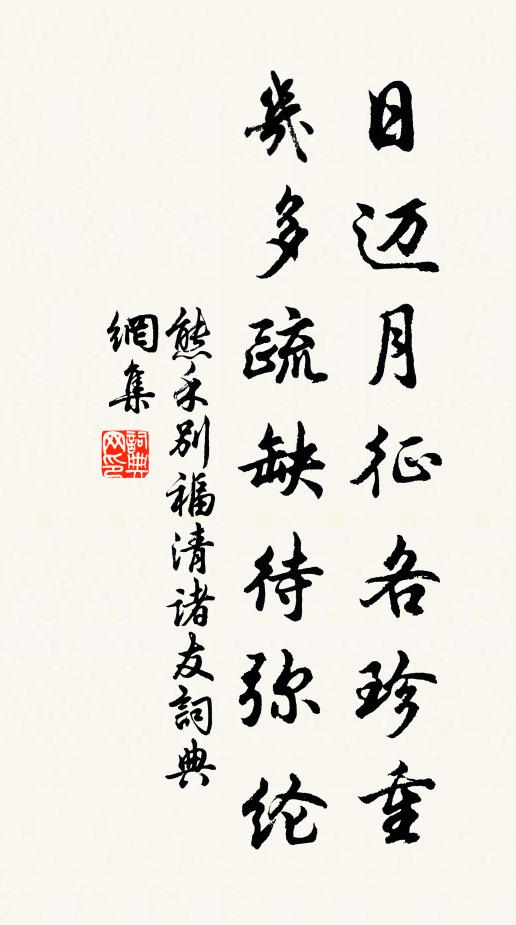 日迈月征各珍重
几多疏缺待弥纶
熊禾别福清诸友詞典
網集
詞典網印